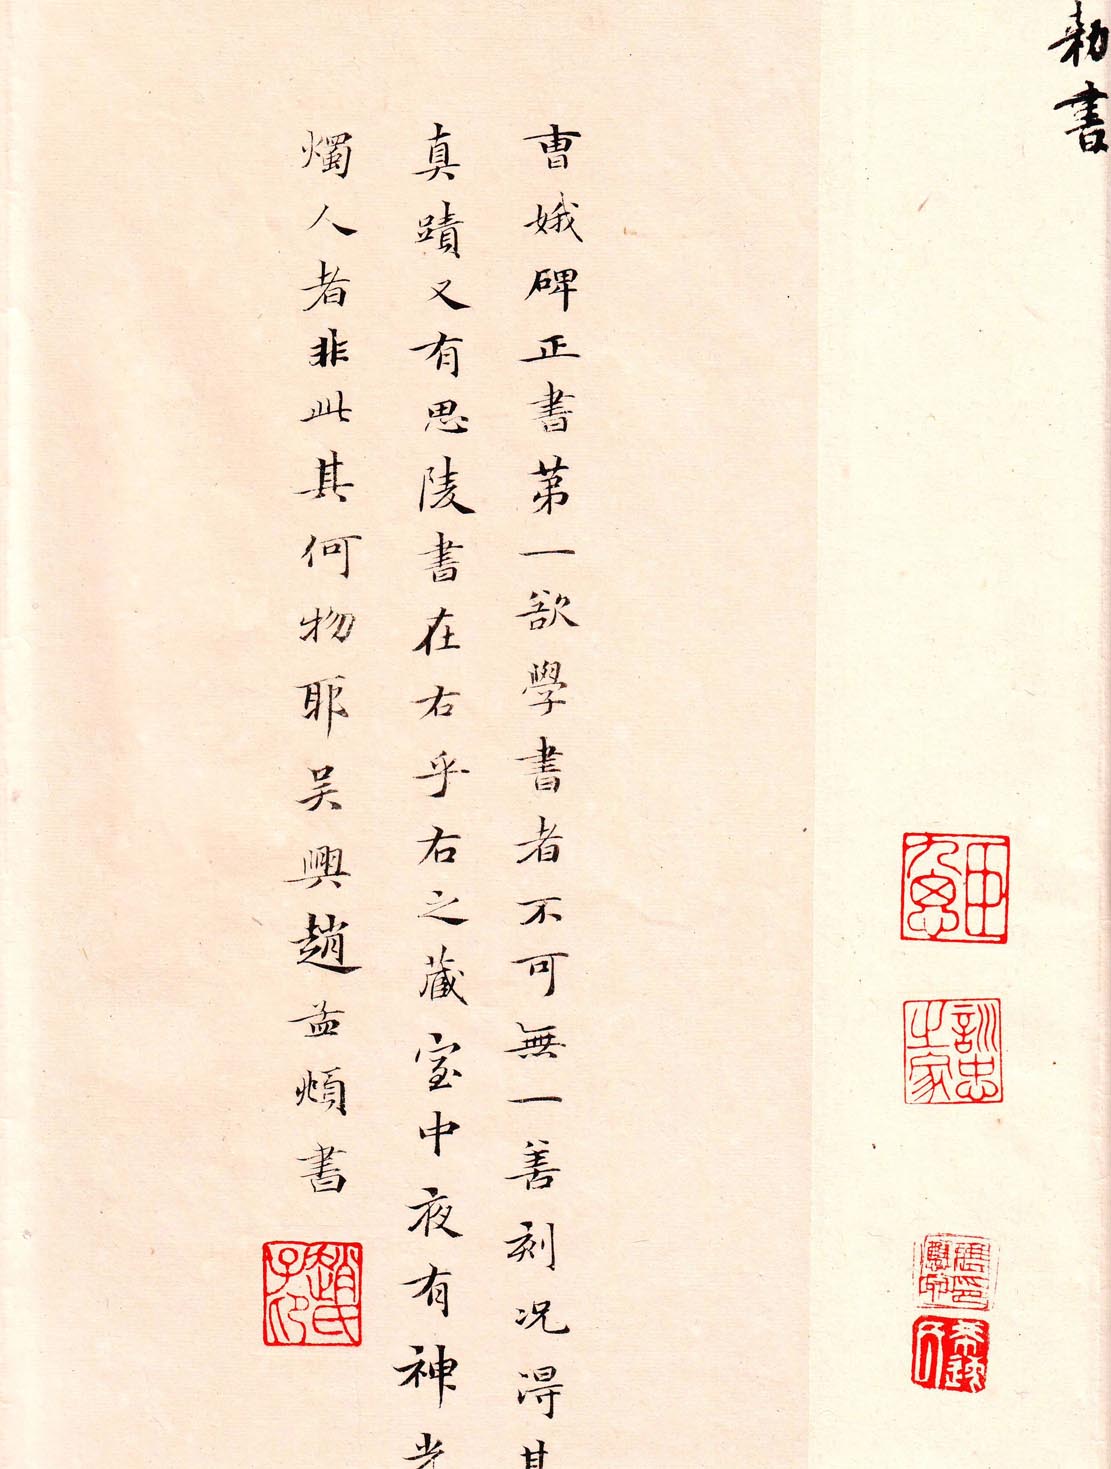 勑書
曹娥碑正書第一欲學書者不可無一善刻況得其
真蹟又有思陵書在右乎右之藏室中夜有神光
燭人者非此其何物耶吴興趙孟頫書
趙氏子印
訓忠之家